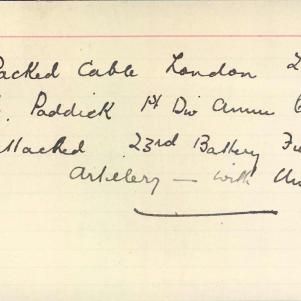 Packed Cable London
Paddick 1st Div Ammn
attached 23rd Battery
Artillery — with